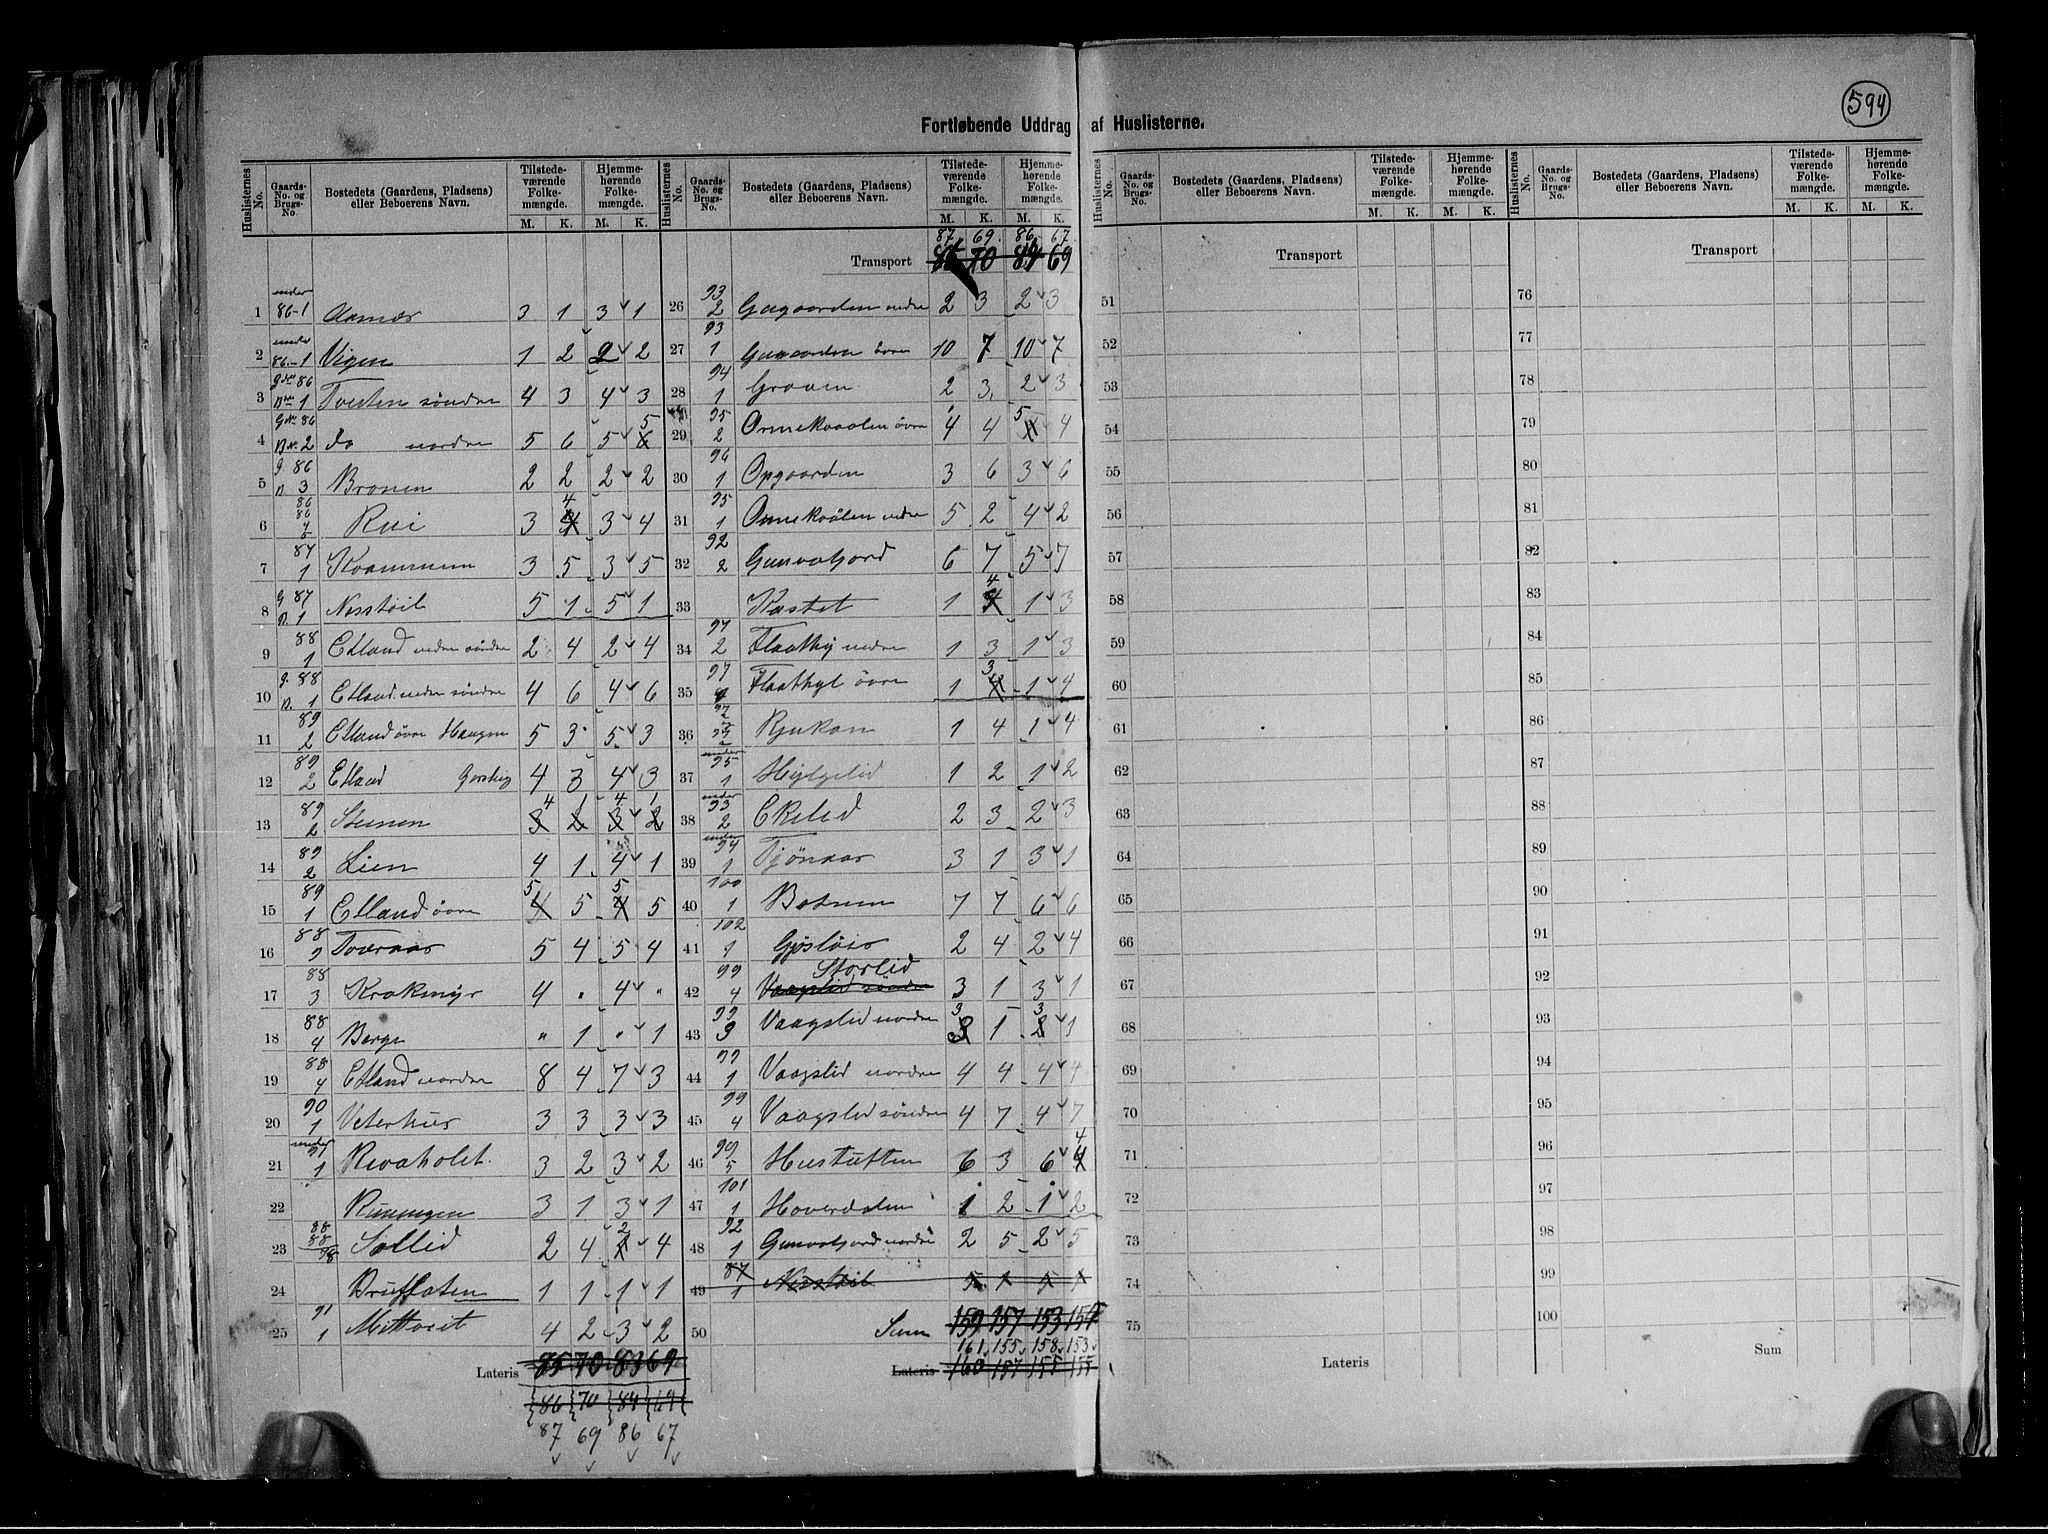 594
Fortløbende Uddrag af Huslisterne.
Huslisternes No. Gaards-No. og Brugs-No. Bostedets (Gaardens, Pladsens) eller Beboerens Navn. Tilstedeværende Folkemængde. M. K. Hjemmehørende Folkemængde. M. K.
1 under 86-1 Aamær 3 1 3 1
2 under 86-1 Vigen 1 2 2 2
3 Gno 86 Bno 1 Tveiten søndre 4 3 4 3
4 GNo 86 BNo 2 do nordre 5 6 5 5
5 G. 86 B. 3 Bronen 2 2 2 2
6 86 86 Rui 3 4 3 4
7 87 1 Kaammum 3 5 3 5
8 G 87 B. 1 Nesstøil 5 1 5 1
9 88 1 Edland nedre søndre 2 4 2 4
10 G. 88 B. 1 Edland nedre søndre 4 6 4 6
11 89 2 Edland øvre Haugen 5 3 5 3
12 89 2 Edland 4 3 4 3
13 89 2 Stenen 4 1 4 1
14 89 2 Lien 4 1 4 1
15 89 1 Edland øvre 5 5 5 5
16 88 2 Tveraas 5 4 5 4
17 88 3 Krokmyr 4 " 4 "
18 88 4 Berge " 1 " 1
19 88 4 Edland nordre 8 4 7 3
20 90 1 Veterhus 3 3 3 3
21 under 91 1 Revaholet. 3 2 3 2
22 Runningen 3 1 3 1
23 88 88 /8 Sollid 2 4 2 4
24 Bruflaten 1 1 1 1
25 91 1 Mittveit 4 2 3 2
Lateris 75 70 83 69
86 70 84 69
87 69 86 67
87 69 86 67
Transport 86 70 84 69
26 93 2 Gugaarden nedre 2 3 2 3
27 93 1 Gugaarden øvre 10 7 10 7
28 94 1 Graven 2 3 2 3
29 95 2 Ormekaaalen øvre 4 4 5 4
30 96 1 Opgaarden 3 6 3 6
31 95 1 Ormekaalen nedre 5 2 4 2
32 92 2 Gunvatjord 6 7 5 7
33 Kastet 1 4 1 3
34 97 2 Flaathyl nedre 1 3 1 3
35 97 1 Flaathyl øvre 1 3 1 4
36 97 2 Rjukan 1 4 1 4
37 under 95 1 Hylgelid 1 2 1 2
38 under 93 2 Ekelid 2 3 2 3
39 under 94 1 Tjønaas 3 1 3 1
40 100 1 Botnen 7 7 6 6
41 102 1 Gjisløis 2 4 2 4
42 99 4 Vaagslid søndre Storlid 3 1 3 1
43 99 3 Vaagslid nordre 3 1 3 1
44 99 1 Vaagslid nordre 4 4 4 4
45 99 4 Vaagslid søndre 4 7 4 7
46 99 5 Hustuften 6 3 6 4
47 101 1 Hoverdalen 1 2 1 2
48 92 1 Gunvatjord nordre 2 5 2 5
49 87 1 Nesstøil 5 1 5 1
50 Sum 159 157 153 157
161 155 158 153
Lateris 160 157 155 155
Huslisternes No. Gaards-No. og Brugs-No. Bostedets (Gaardens, Pladsens) eller Beboerens Navn. Tilstedeværende Folkemængde. M. K. Hjemmehørende Folkemængde. M. K.
Transport
51
52
53
54
55
56
57
58
59
60
61
62
63
64
65
66
67
68
69
70
71
72
73
74
75
Lateris
Transport
76
77
78
79
80
81
82
83
84
85
86
87
88
89
90
91
92
93
94
95
96
97
98
99
100
Sum